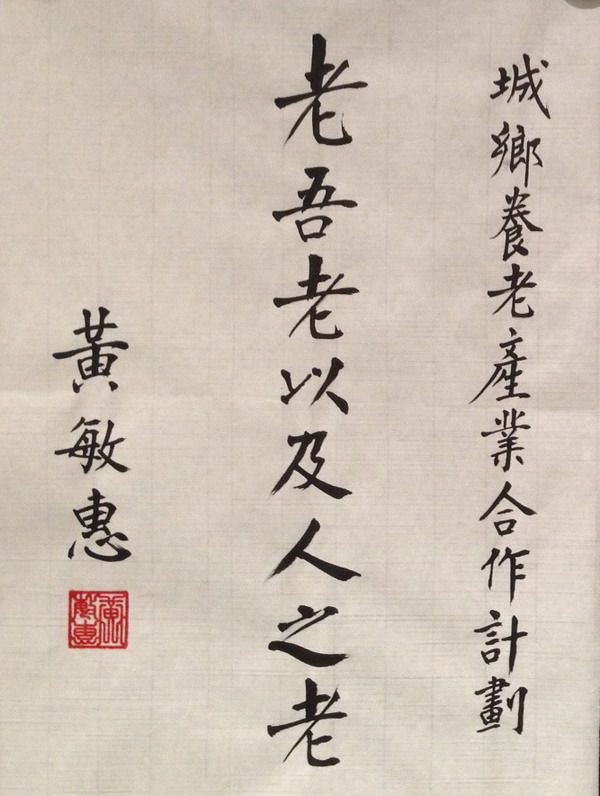 城鄉養老產業合作計劃
老吾老以及人之老
黃敏惠